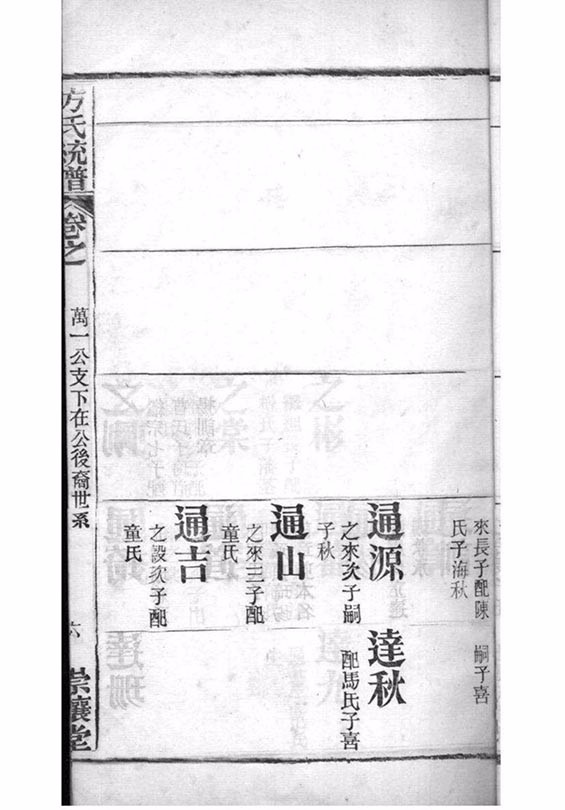 來長子配陳
氏子海秋
嗣子喜
通源
之來次子嗣
子秋
達秋
配馬氏子喜
通山
之來三子配
童氏
通吉
之設次子配
童氏
方氏統譜
卷之
萬一公支下在公後裔世系
六
崇讓堂